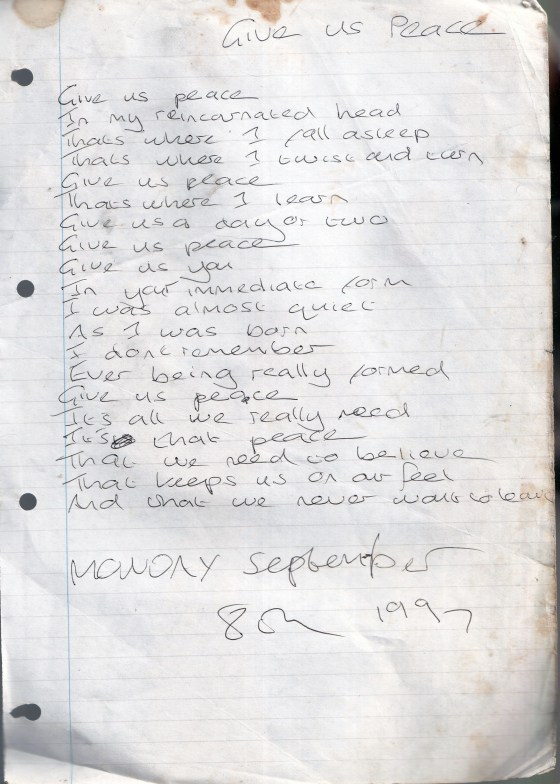 Give us Peace
Give us peace
In my reincarnated head
Thats where I fall asleep
Thats where I twist and turn
Give us peace
Thats where I learn
Give us a day or two
Give us peace
Give us you
In your immediate form
I was almost quiet
As I was born
I dont remember
Ever being really formed
Give us peace
It's all we really need
It's that peace
That we need to believe
That keeps us on our feet
And what we never want to leave
MONDAY September
8th 1997